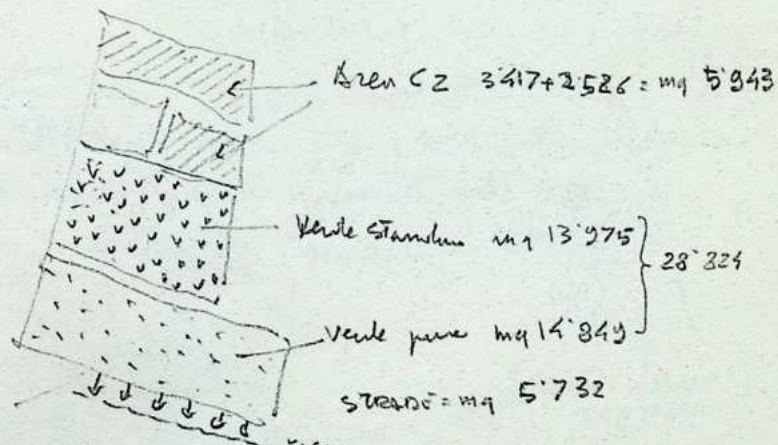 Area C2 3'417+2'526 = mq 5'943
Verde standard mq 13'975
28'824
verde privé mq 14'849
STRADE = mq 5'732